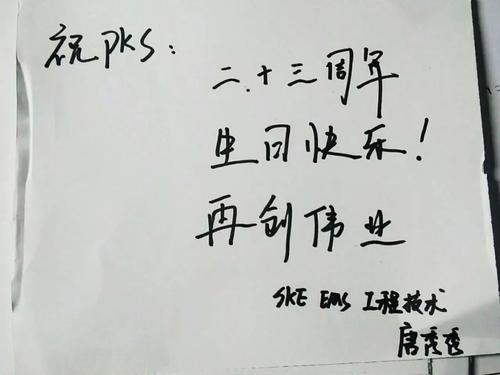 祝PKS：
二十三周年
生日快乐！
再创伟业
SKE EMS 工程技术
唐秀秀